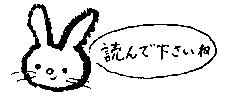 読んで下さいね